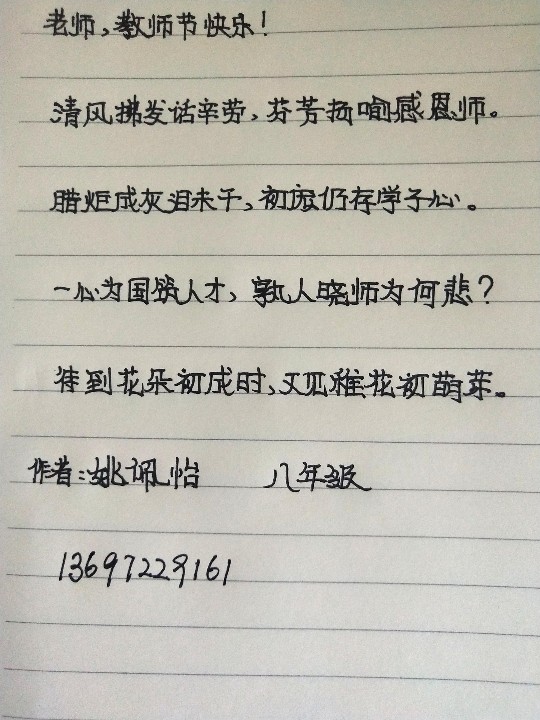 老师,教师节快乐!
清风拂发话辛劳,芬芳扬喻感恩师。
腊炬成灰泪未干,初衷仍存学子心。
一心为国筑人才,孰人晓师为何悲?
待到花朵初成时,又见稚花初萌芽。
作者:姚佩怡 八年级
13697229161